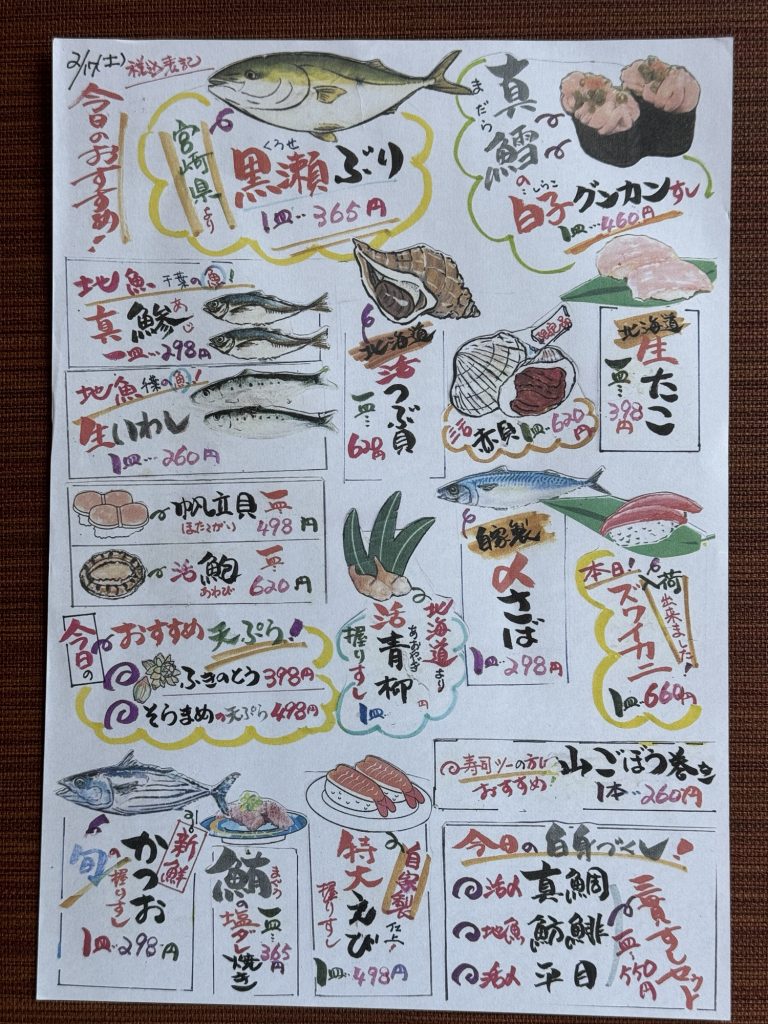 2/17(土)
税込表記
今日のおすすめ!
宮崎県より
くろせ
黒瀬ぶり
1皿‥365円
まだら
真鱈の
しらこ
白子グンカンすし
1皿‥460円
地魚 千葉の魚!
真鯵
あじ
一皿‥298円
地魚 千葉の魚!
生いわし
1皿‥260円
北海道
活つぶ貝
一皿‥628円
活赤貝 1皿‥620円
北海道
生たこ
一皿‥398円
帆立貝 一皿
ほたてがい 498円
活鮑 一皿
あわび 620円
今日の
おすすめ天ぷら!
ふきのとう 398円
そらまめの天ぷら 498円
北海道より
活青柳
あおやぎ
握りすし
1皿‥ 円
自家製
〆さば
1皿‥298円
本日!
入荷出来ました!
ズワイカニ
1皿‥660円
寿司ツーの方に
おすすめ!
山ごぼう巻き
1本‥260円
新鮮
かつお
旬の握りすし
1皿‥298円
まぐろ
鮪の塩ダレ焼き
一皿‥365円
自家製仕上!
特大えび
握りすし
1皿‥498円
今日の白身づくし!
活〆 真鯛
地魚 魴鮄
活〆 平目
三貫すしセット
一皿‥550円